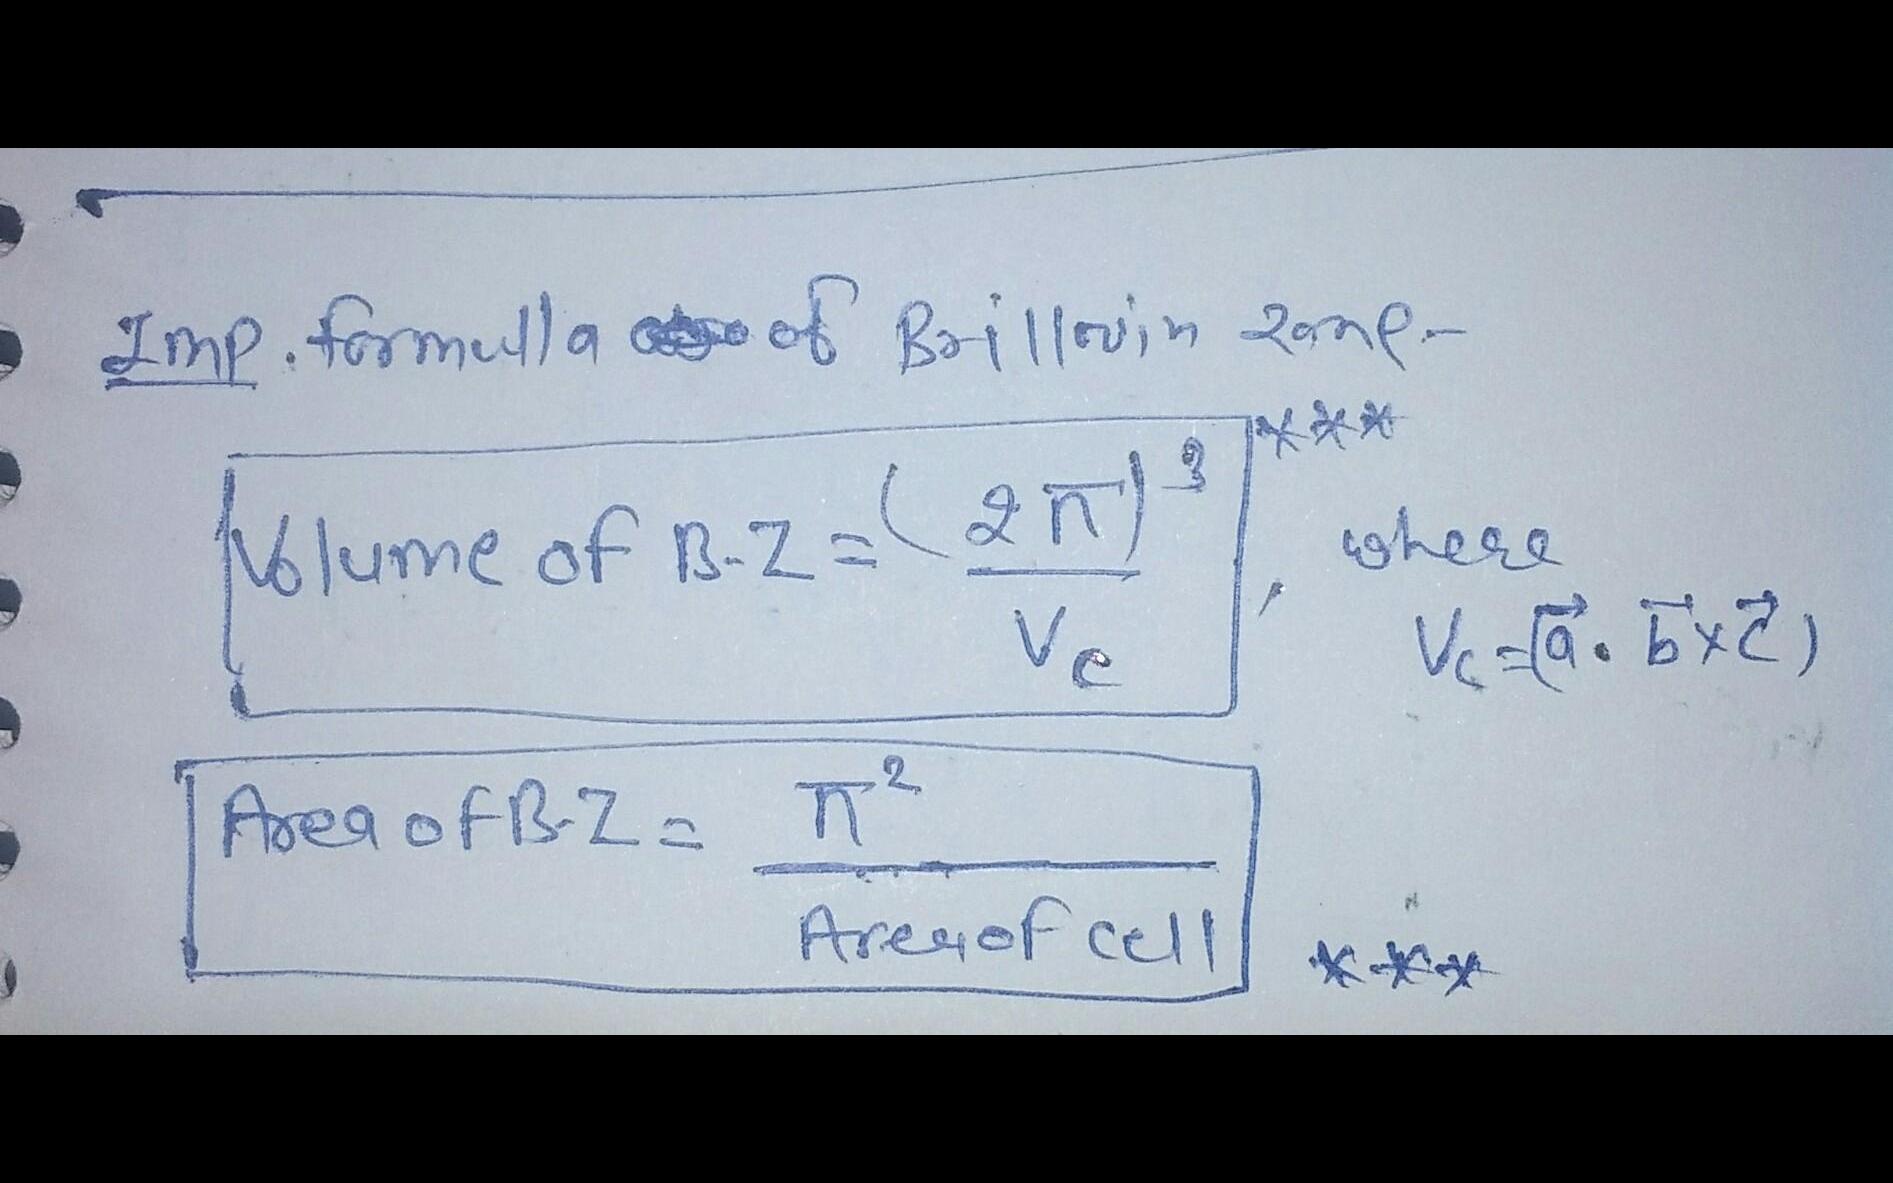 Imp. formulla of Brillouin zone-
***
Volume of B-Z = (2π)³ / Vc , where
Vc = (a⃗ . b⃗ × c⃗)
Area of B-Z = π² / Area of cell
***